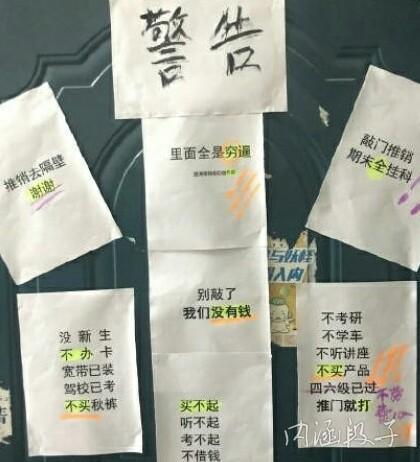 警告
推销去隔壁
谢谢
里面全是穷逼
敲门推销
期末全挂科
别敲了
我们没有钱
没新生
不办卡
宽带已装
驾校已考
不买秋裤
买不起
听不起
考不起
不借钱
不考研
不学车
不听讲座
不买产品
四六级已过
推门就打
内涵段子